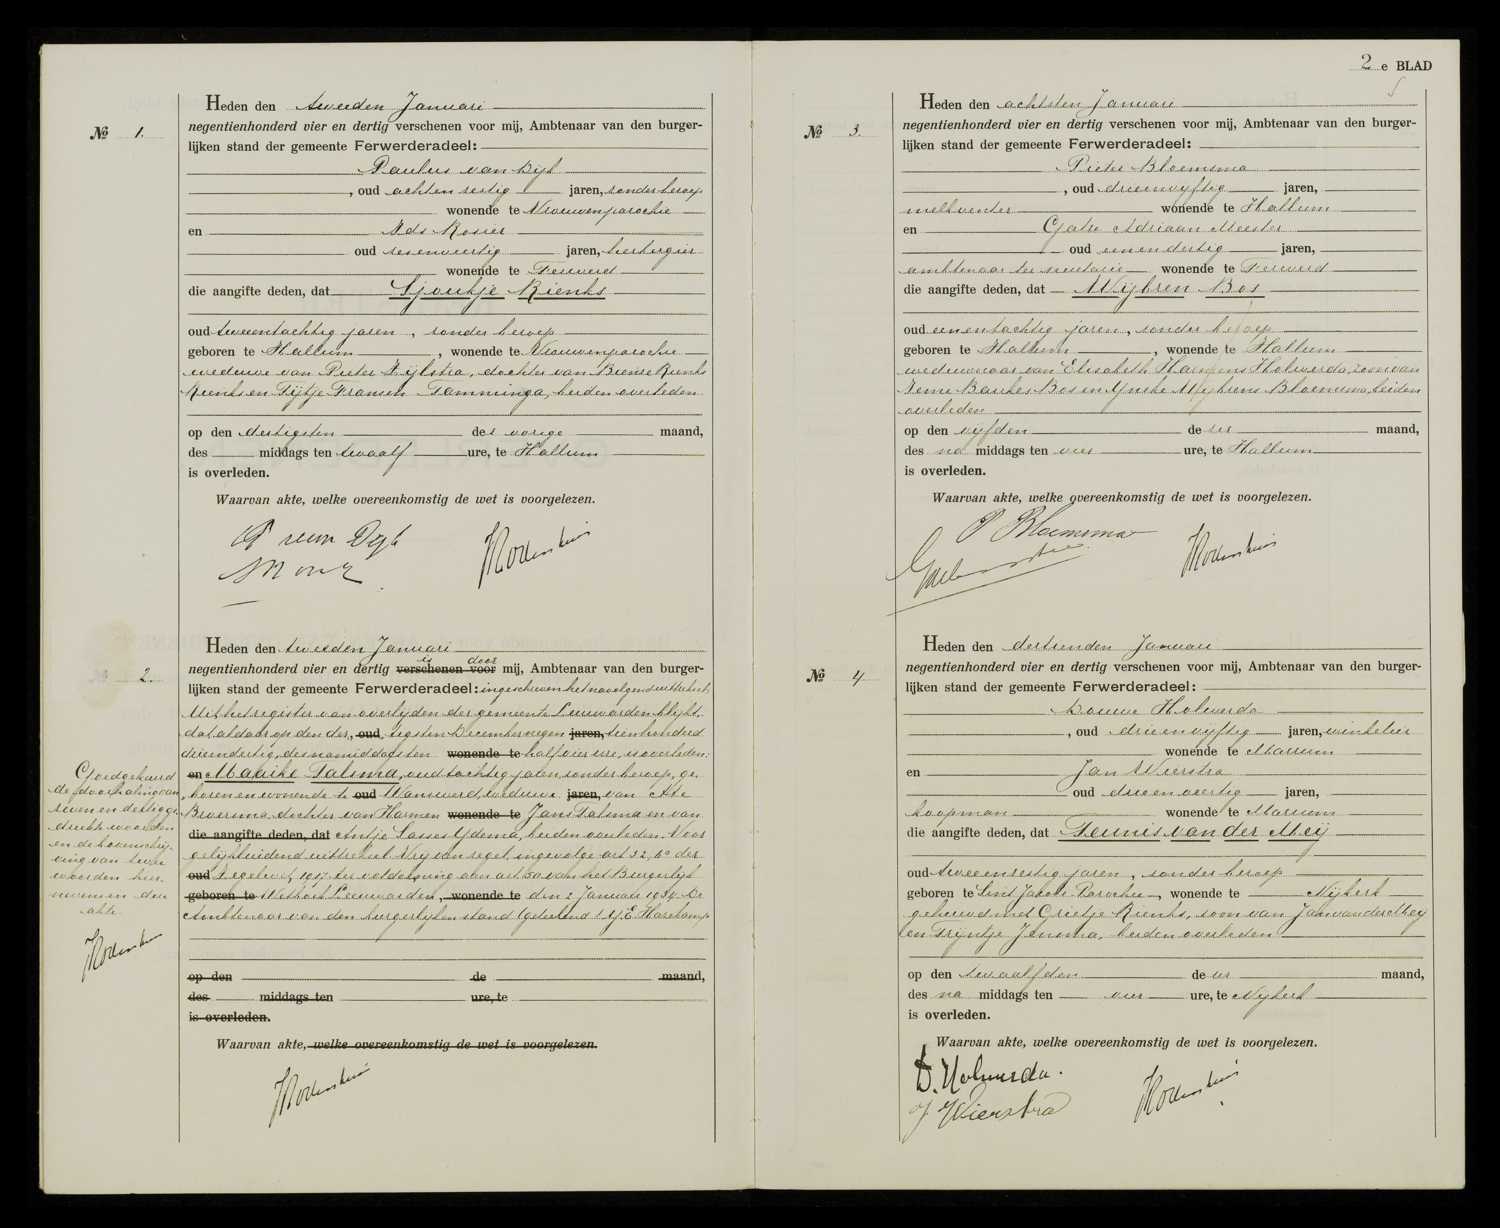 Nº 1.
Heden den tweeden Januari
negentienhonderd vier en dertig verschenen voor mij, Ambtenaar van den burger-
lijken stand der gemeente Ferwerderadeel:
Paulus van Dijk
, oud achtenzestig jaren, zonder beroep
wonende te Vrouwenparochie
en Ids Rosier
oud zesenveertig jaren, herbergier
wonende te Ferwerd
die aangifte deden, dat Sjoukje Rienks
oud tweeentachtig jaren, zonder beroep
geboren te Hallum, wonende te Vrouwenparochie
weduwe van Pieter Zijlstra, dochter van Biense Rienks
Rienks en Tijtje Fransen Tamminga, beiden overleden
op den dertigsten des vorige maand,
des middags ten twaalf ure, te Hallum
is overleden.
Waarvan akte, welke overeenkomstig de wet is voorgelezen.
P van Dijk
Nº 2.
Heden den tweeden Januari
is door
negentienhonderd vier en dertig verschenen voor mij, Ambtenaar van den burger-
lijken stand der gemeente Ferwerderadeel: ingeschreven het navolgend uittreksel
Uit het register van overlijden der gemeente Leeuwarden blijkt,
dat aldaar op den der, oud tigsten December negen jaren, tienhonderd
drieendertig, des namiddags ten wonende te half vier ure, is overleden:
en Maaike Talsma, oud tachtig jaren zonder beroep, ge-
boren en wonende te oud Wanswerd, weduwe jaren, van Ate
Broersma dochter van Harmen wonende te Jans Talsma en van
die aangifte deden, dat Antje Sasses Ydema, beiden overleden. Voor
gelijkluidend uittreksel Vrij van zegel, ingevolge art 32, 6º der
oud Zegelwet 1917 ter voldoening aan art. 50 van het Burgerlijk
geboren te Wetboek Leeuwarden, wonende te den 2 Januari 1934. De
Ambtenaar van den burgerlijken stand (geteekend) Y.E. Harkamp
op den de maand,
des middags ten ure, te
is overleden.
Waarvan akte, welke overeenkomstig de wet is voorgelezen.
Goedgekeurd
de doorhaling van
zeven en dertig ge-
drukte woorden
en de bovenschrij-
ving van twee
woorden hier-
nevens in deze
akte.
2e BLAD
Nº 3.
Heden den achtsten Januari
negentienhonderd vier en dertig verschenen voor mij, Ambtenaar van den burger-
lijken stand der gemeente Ferwerderadeel:
Pieter Bloemsma
, oud drieenvijftig jaren,
melkventer wonende te Hallum
en Gatse Adriaan Meester
oud eenendertig jaren,
ambtenaar ter secretarie wonende te Ferwerd
die aangifte deden, dat Wijbren Bos
oud eenentachtig jaren, zonder beroep
geboren te Hallum, wonende te Hallum
weduwnaar van Elisabeth Harmens Holwerda, zoon van
Jeme Baukes Bos en Yneke Wijbrens Bloemsma, beiden
overleden
op den vijfden dezer maand,
des na middags ten vier ure, te Hallum
is overleden.
Waarvan akte, welke overeenkomstig de wet is voorgelezen.
P Bloemsma
Nº 4
Heden den dertienden Januari
negentienhonderd vier en dertig verschenen voor mij, Ambtenaar van den burger-
lijken stand der gemeente Ferwerderadeel:
Douwe Holwerda
, oud drieenvijftig jaren, winkelier
wonende te Marrum
en Jan Wierstra
oud drieenveertig jaren,
koopman wonende te Marrum
die aangifte deden, dat Teunis van der Meij
oud tweeenzestig jaren, zonder beroep
geboren te Sint Jacobi-Parochie, wonende te Nijkerk
gehuwd met Grietje Rienks, zoon van Jan van der Meij
en Trijntje Jensma, beiden overleden
op den twaalfden dezer maand,
des na middags ten vier ure, te Nijkerk
is overleden.
Waarvan akte, welke overeenkomstig de wet is voorgelezen.
D. Holwerda.
J Wierstra